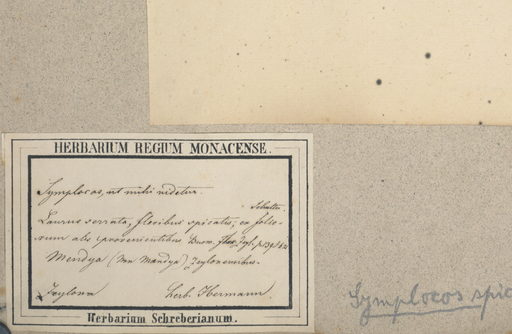 HERBARIUM REGIUM MONACENSE.
Symplocos, ut mihi videtur.
Schultes.
Laurus serrata, floribus spicatis, ex folio-
rum alis provenientibus Burm. Zeyl. p.
Mendya (van Mandya) Zeylonensibus.
Zeylona Herb. Hermann.
Herbarium Schreberianum.
Symplocos spic